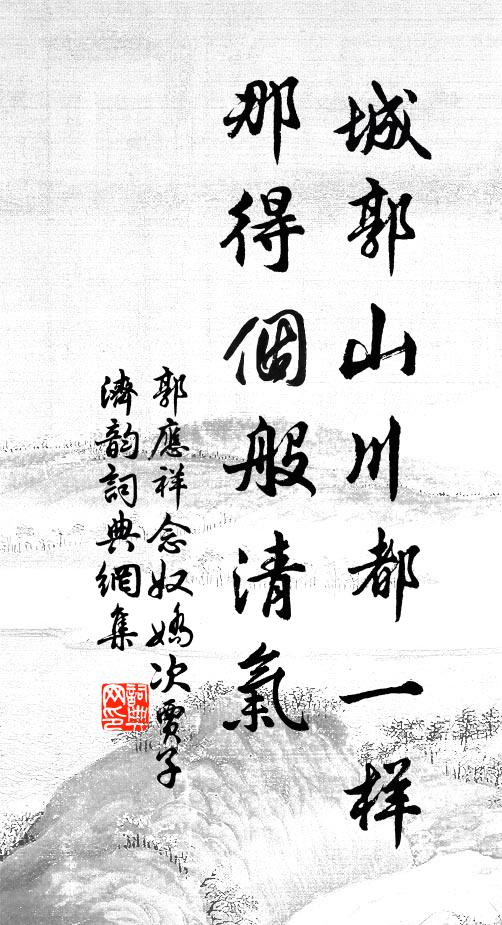 城郭山川都一样
那得個般清氣
郭應祥念奴嬌次賈子
濟韵詞典網集
詞典网印